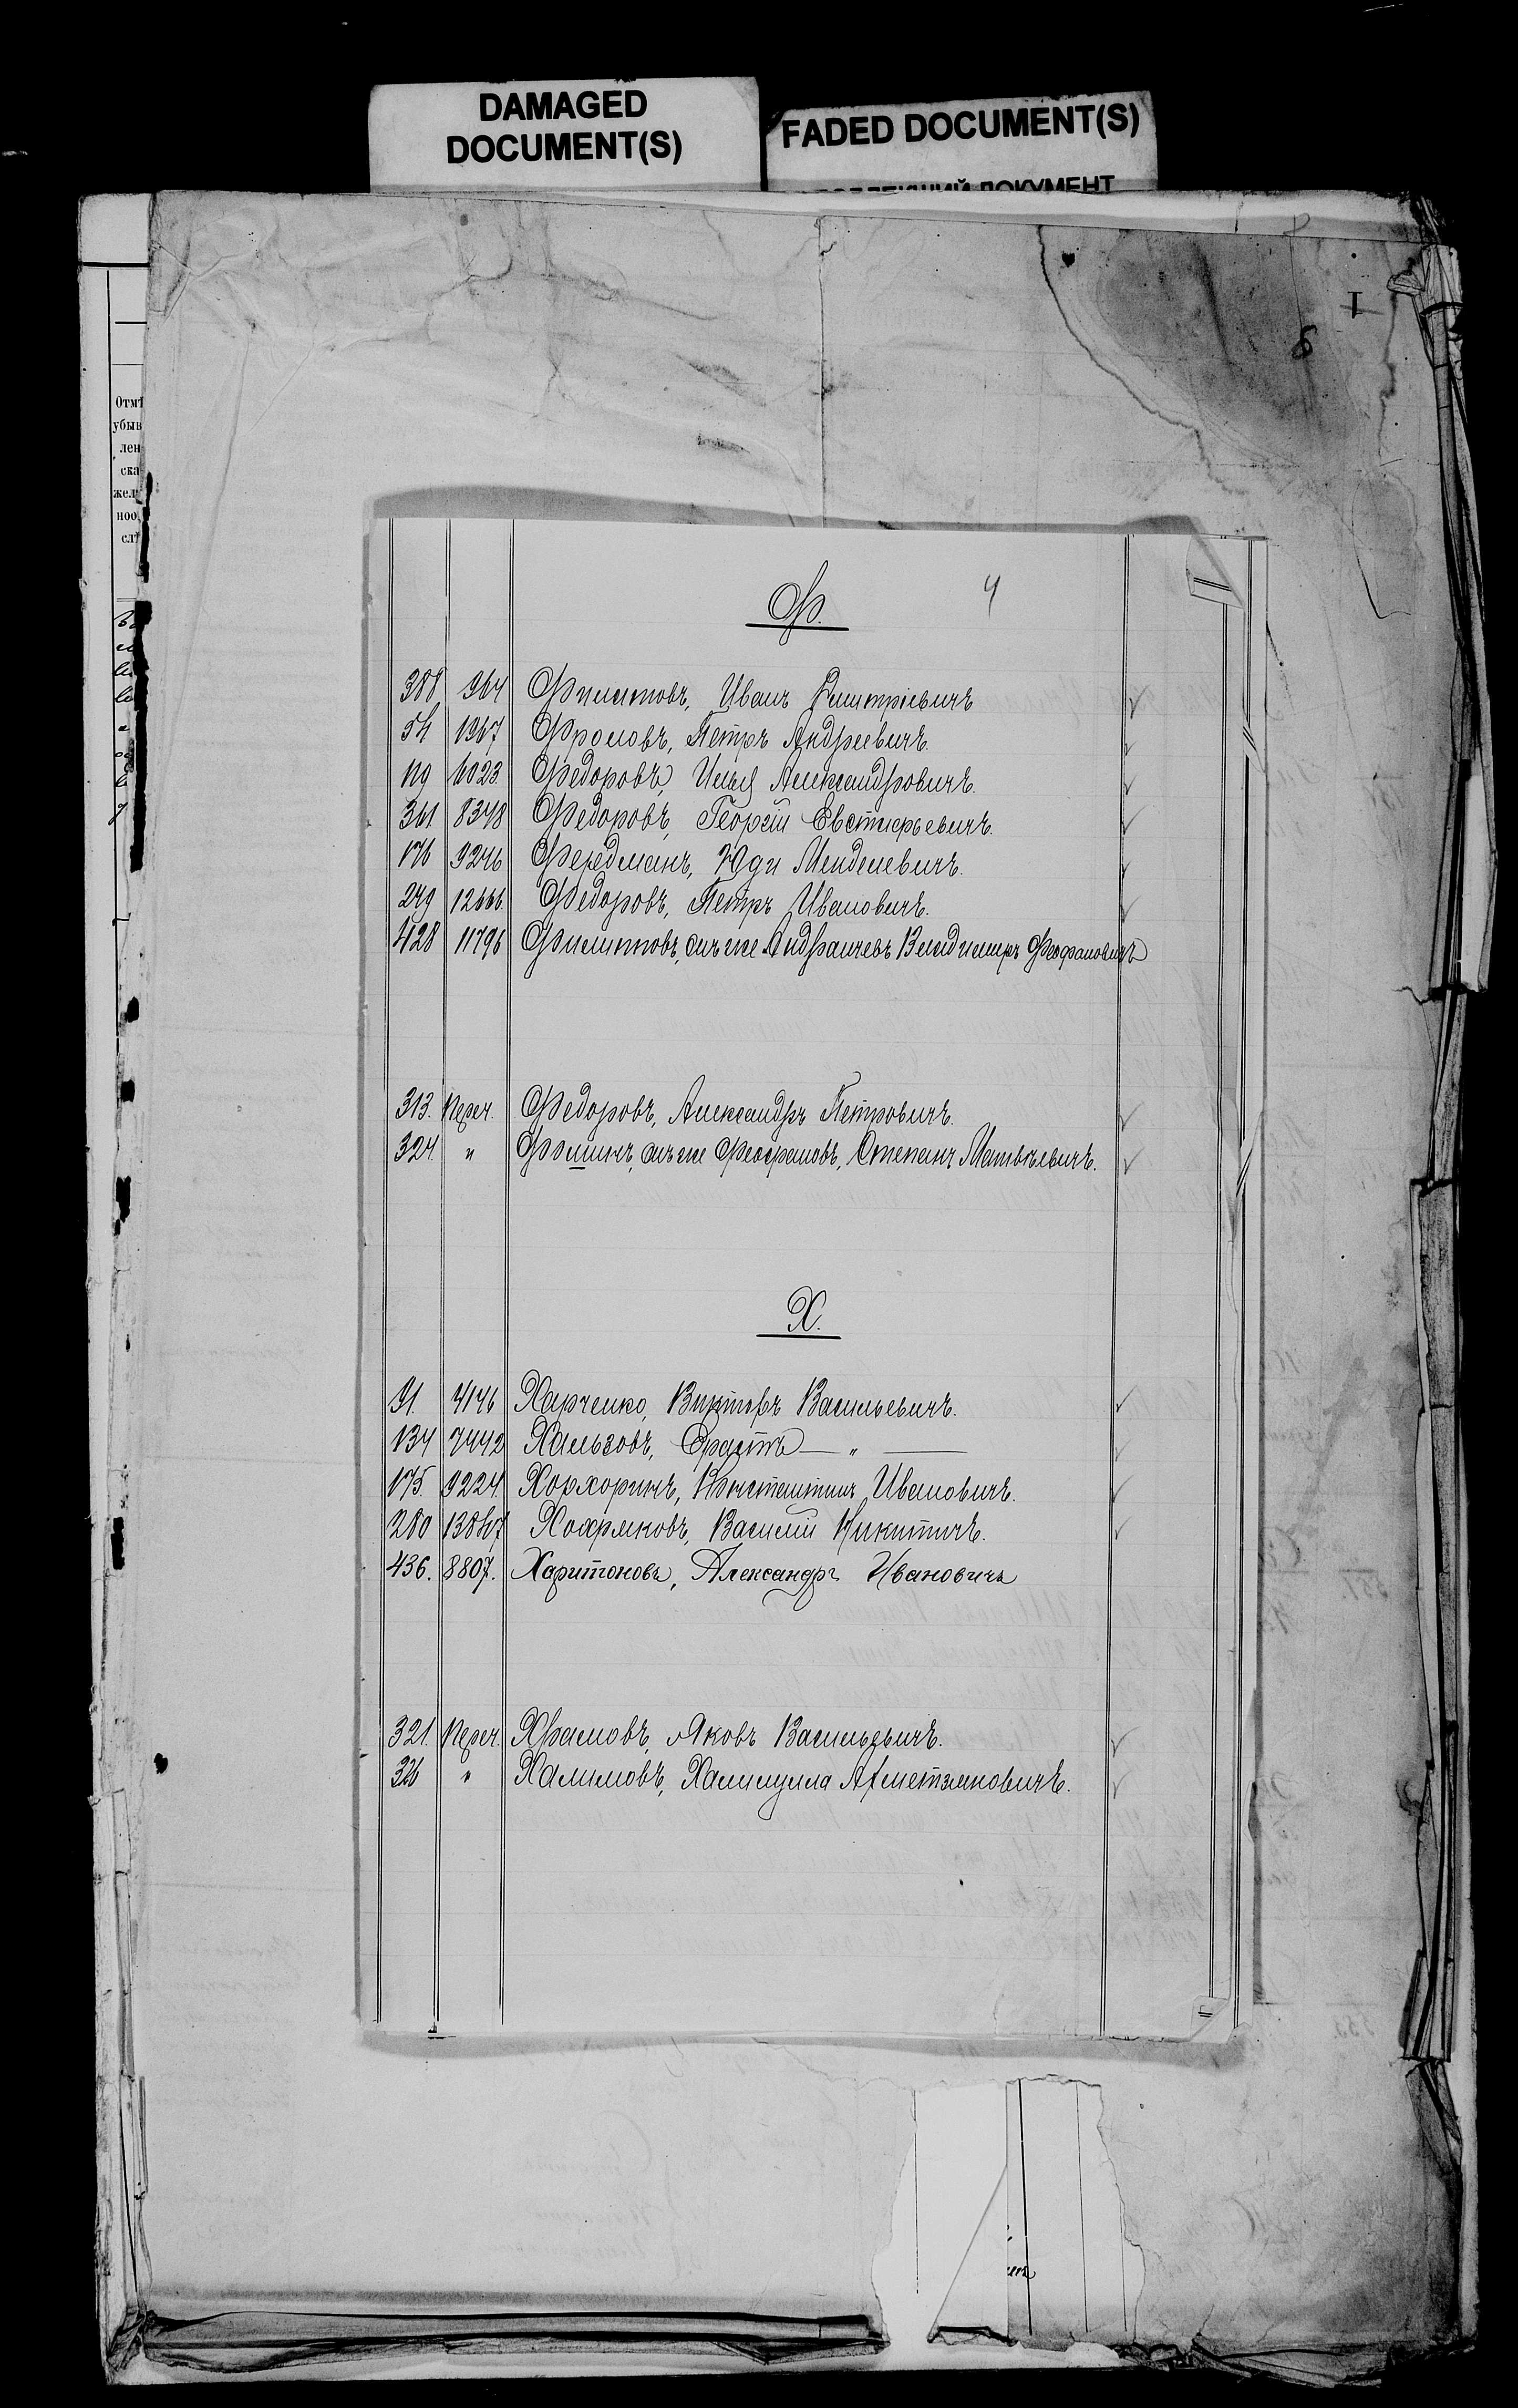 DAMAGED
DOCUMENT(S)
FADED DOCUMENT(S)
Отмѣ
убыв
лен
ска
жел
ноо
слѣ
4
Ф.
388 964 Филиповъ, Иванъ Дмитріевичъ
54 1967 Фроловъ, Петръ Андреевичъ.
119 6023 Федоровъ, Илья Александровичъ.
361 8348 Федоровъ, Георгій Евстафьевичъ.
176 9246 Фередманъ, Юди Менделевичъ.
249 12666 Федоровъ, Петръ Ивановичъ.
428 11796 Филиповъ, онъ же Владимиръ Феофановичъ
313. Переч. Федоровъ, Александръ Петровичъ.
324. " Фоминъ, онъ же Феофановъ, Степанъ Матвѣевичъ.
Х.
91. 4146 Харченко, Викторъ Васильевичъ.
134 7442 Хальзовъ, Ерастъ — " —
175. 9224. Хорхоринъ, Константинъ Ивановичъ.
280 Василій Никитичъ.
436. 8807. Харитоновъ, Александръ Ивановичъ
321. Переч. Храмовъ, Яковъ Васильевичъ.
326 " Халимовъ, Халиулла Ахметзяновичъ.